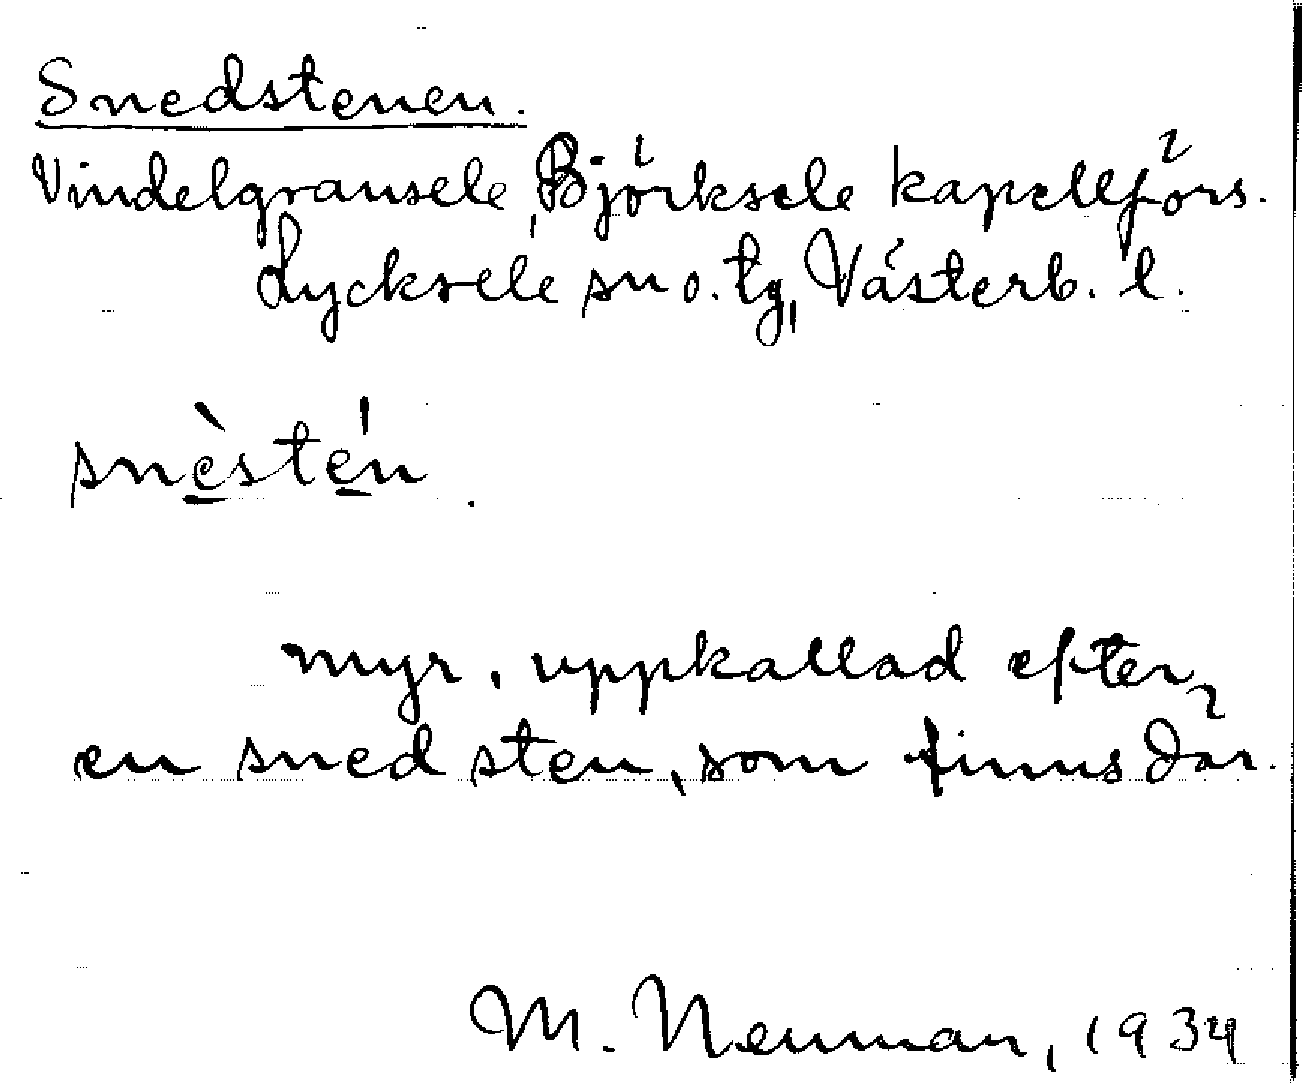 Snedstenen.
Vindelgransele, Björksele kapellförs.
Lycksele sn o. tg, Västerb. l.
snèstén.
myr, uppkallad efter
en sned sten, som finns där.
M. Neuman, 1934